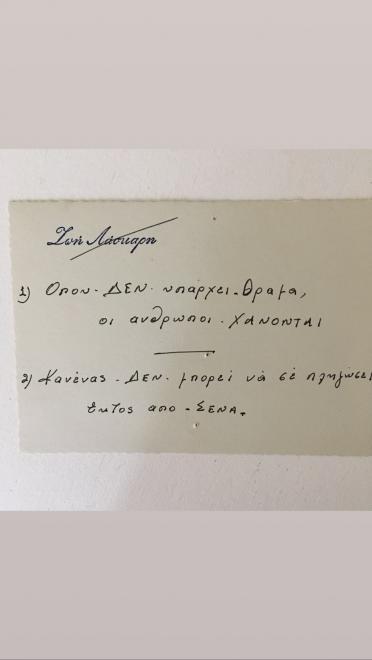 Ζωή Λάσκαρη
1) Οπου - ΔΕΝ - υπάρχει - Όραμα,
οι ανθρωποι - ΧΑΝΟΝΤΑΙ
2) Κανένας - ΔΕΝ - μπορεί νά σέ πληγώσει
εκτος απο - ΣΕΝΑ.